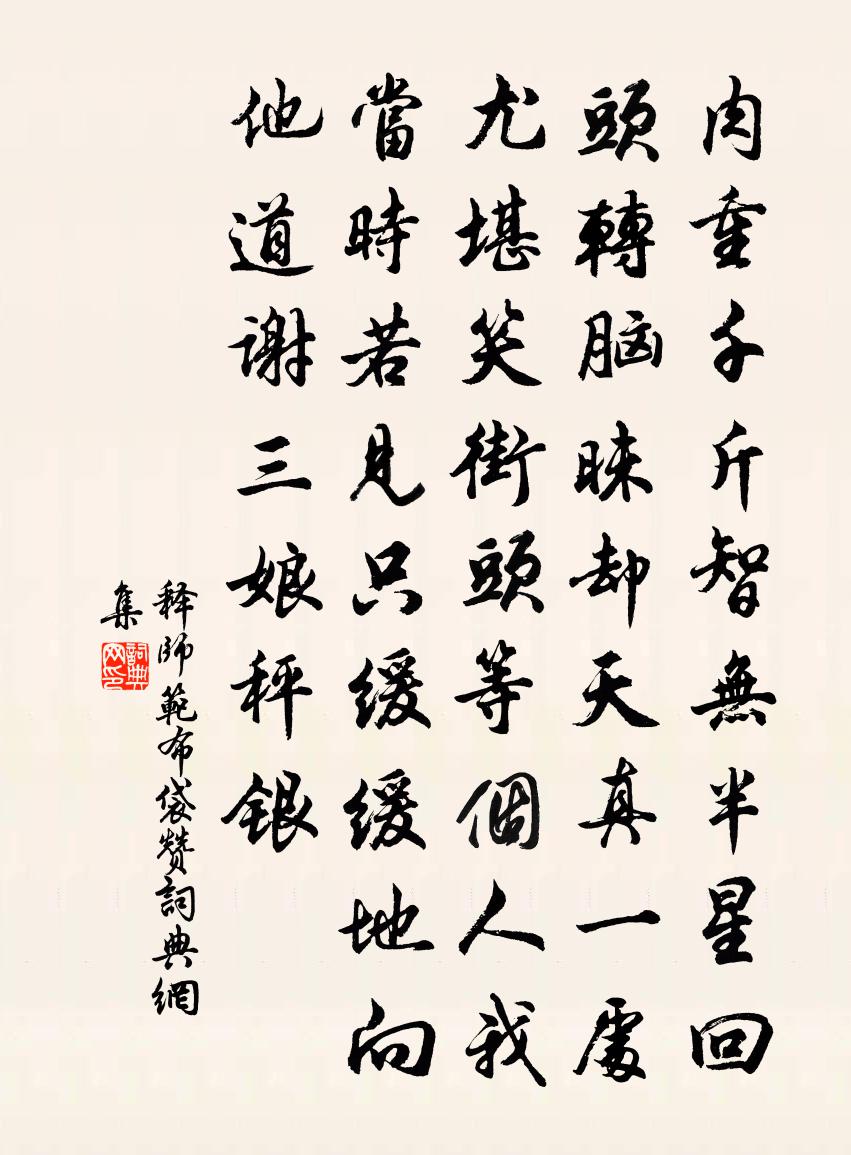 肉重千斤智無半星回
頭轉脑昧却天真一處
尤堪笑街頭等個人我
當時若見只缓缓地向
他道谢三娘秤银
释師範布袋赞詞典網
集
詞典
网印